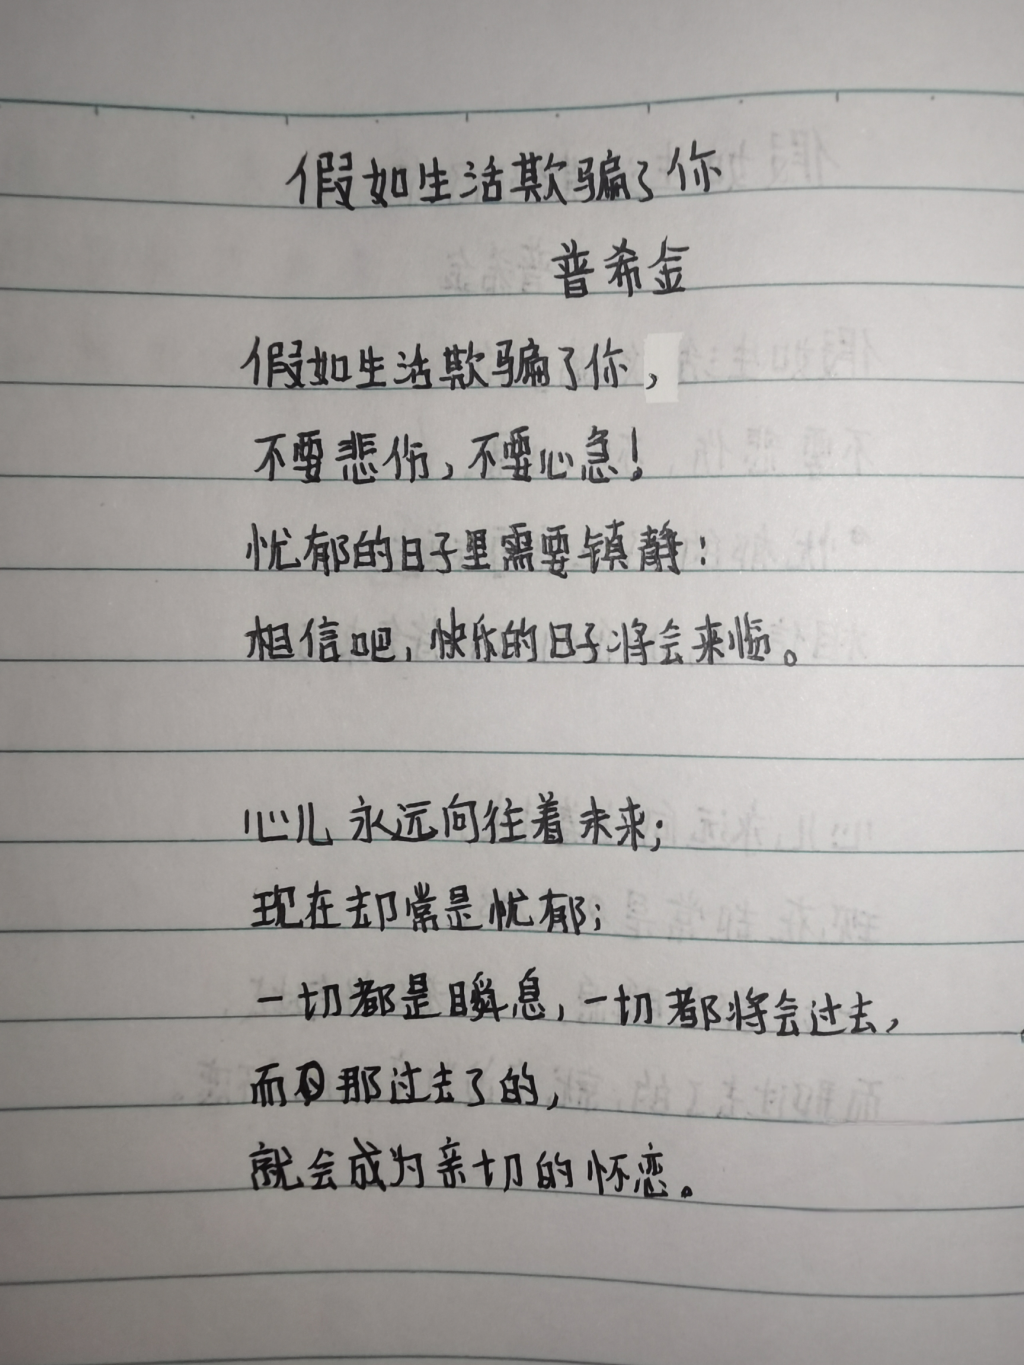 假如生活欺骗了你
普希金
假如生活欺骗了你，
不要悲伤，不要心急！
忧郁的日子里需要镇静：
相信吧，快乐的日子将会来临。
心儿永远向往着未来；
现在却常是忧郁；
一切都是瞬息，一切都将会过去，
而那过去了的，
就会成为亲切的怀恋。